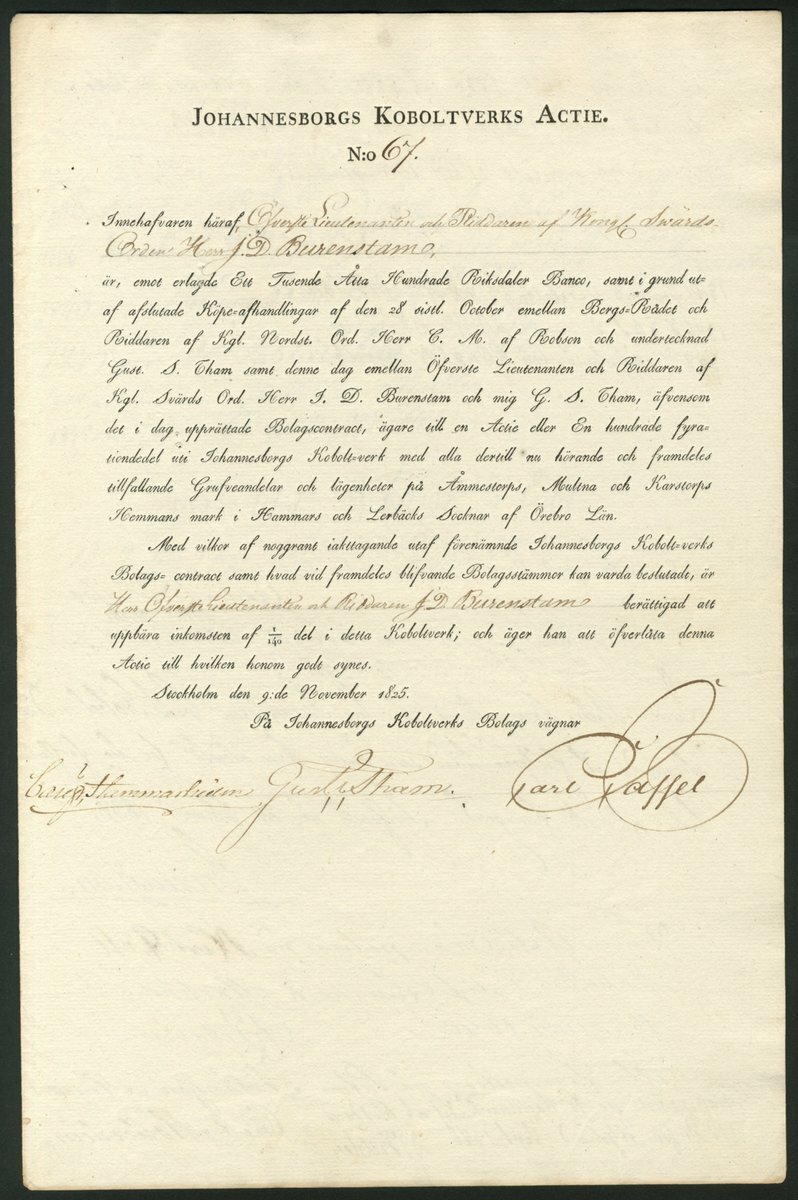 JOHANNESBORGS KOBOLTVERKS ACTIE.
N:o 67.
Innehafvaren häraf, Öfverste Lieutenanten och Riddaren af Kongl. Swärds-
Orden Herr J. D. Burenstam,
är, emot erlagde Ett Tusende Åtta Hundrade Riksdaler Banco, samt i grund ut-
af afslutade Köpe=afhandlingar af den 28 sistl. October emellan Bergs=Rådet och
Riddaren af Kgl. Nordst. Ord. Herr C. M. af Robson och undertecknad
Gust. S. Tham samt denne dag emellan Öfverste Lieutenanten och Riddaren af
Kgl. Svärds Ord. Herr I. D. Burenstam och mig G. S. Tham, äfvensom
det i dag upprättade Bolagscontract, ägare till en Actie eller En hundrade fyra-
tiondedel uti Johannesborgs Kobolt=verk med alla dertill nu hörande och framdeles
tillfallande Grufveandelar och lägenheter på Åmmestorps, Multna och Karstorps
Hemmans mark i Hammars och Lerbäcks Socknar af Örebro Län.
Med vilkor af noggrant iakttagande utaf förenämnde Johannesborgs Kobolt=verks
Bolags= contract samt hvad vid framdeles blifvande Bolagsstämmor kan varda beslutadt, är
Herr Öfverste Lieutenanten och Riddaren J. D. Burenstam berättigad att
uppbära inkomsten af 1/140 del i detta Koboltverk; och äger han att öfverlåta denna
Actie till hvilken honom godt synes.
Stockholm den 9:de November 1825.
På Johannesborgs Koboltverks Bolags vägnar
Gust. S. Tham. Carl Gasset